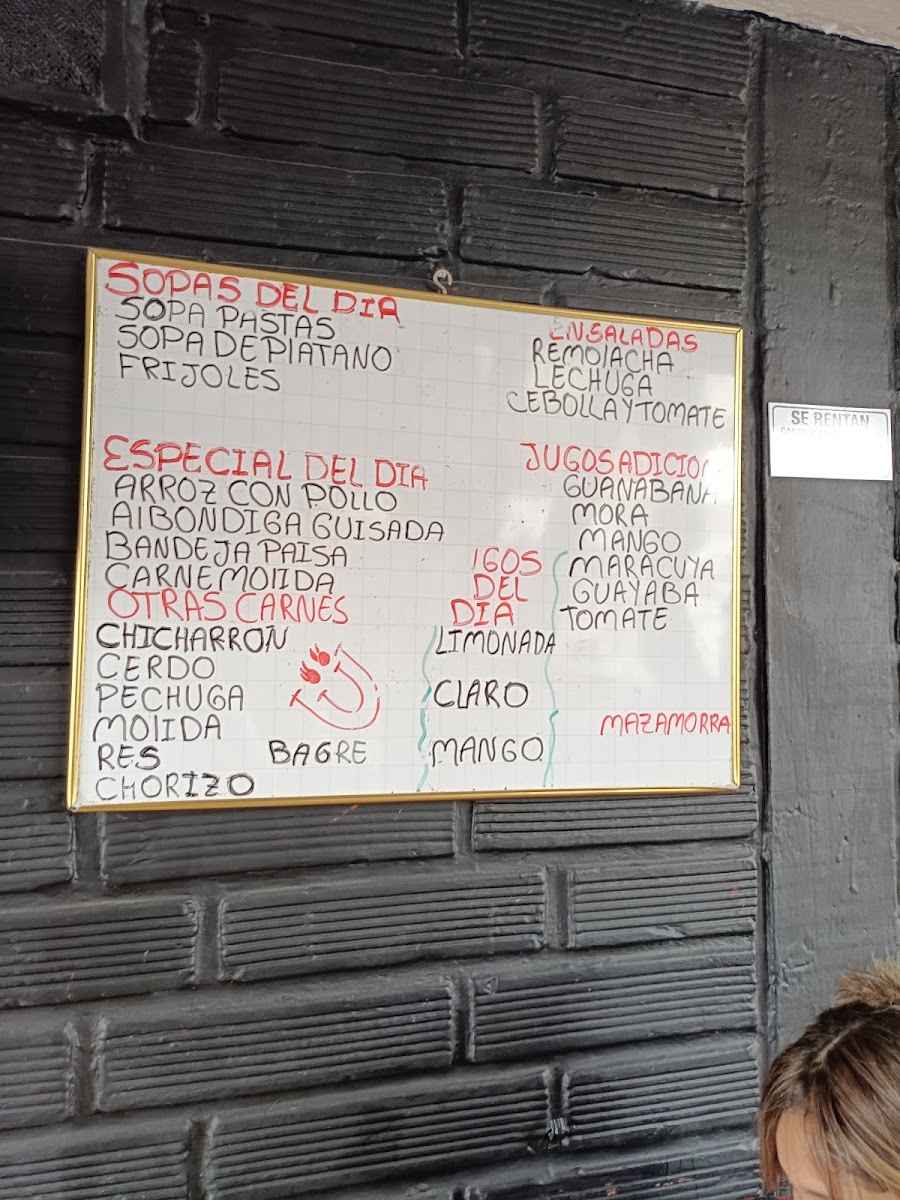 SOPAS DEL DIA
SOPA PASTAS
SOPA DE PlATANO
FRIJOLES
ESPECIAL DEL DIA
ARROZ CON POLLO
AlBONDIGA GUISADA
BANDEJA PAISA
CARNE MOlIDA
OTRAS CARNES
CHICHARRON
CERDO
PECHUGA
MOlIDA
RES
BAGRE
CHORIZO
IGOS
DEL
DIA
LIMONADA
CLARO
MANGO
ENSALADAS
REMOlACHA
LECHUGA
CEBOLLA Y TOMATE
JUGOS ADICIO
GUANABANA
MORA
MANGO
MARACUYA
GUAYABA
TOMATE
MAZAMORRA
SE RENTAN